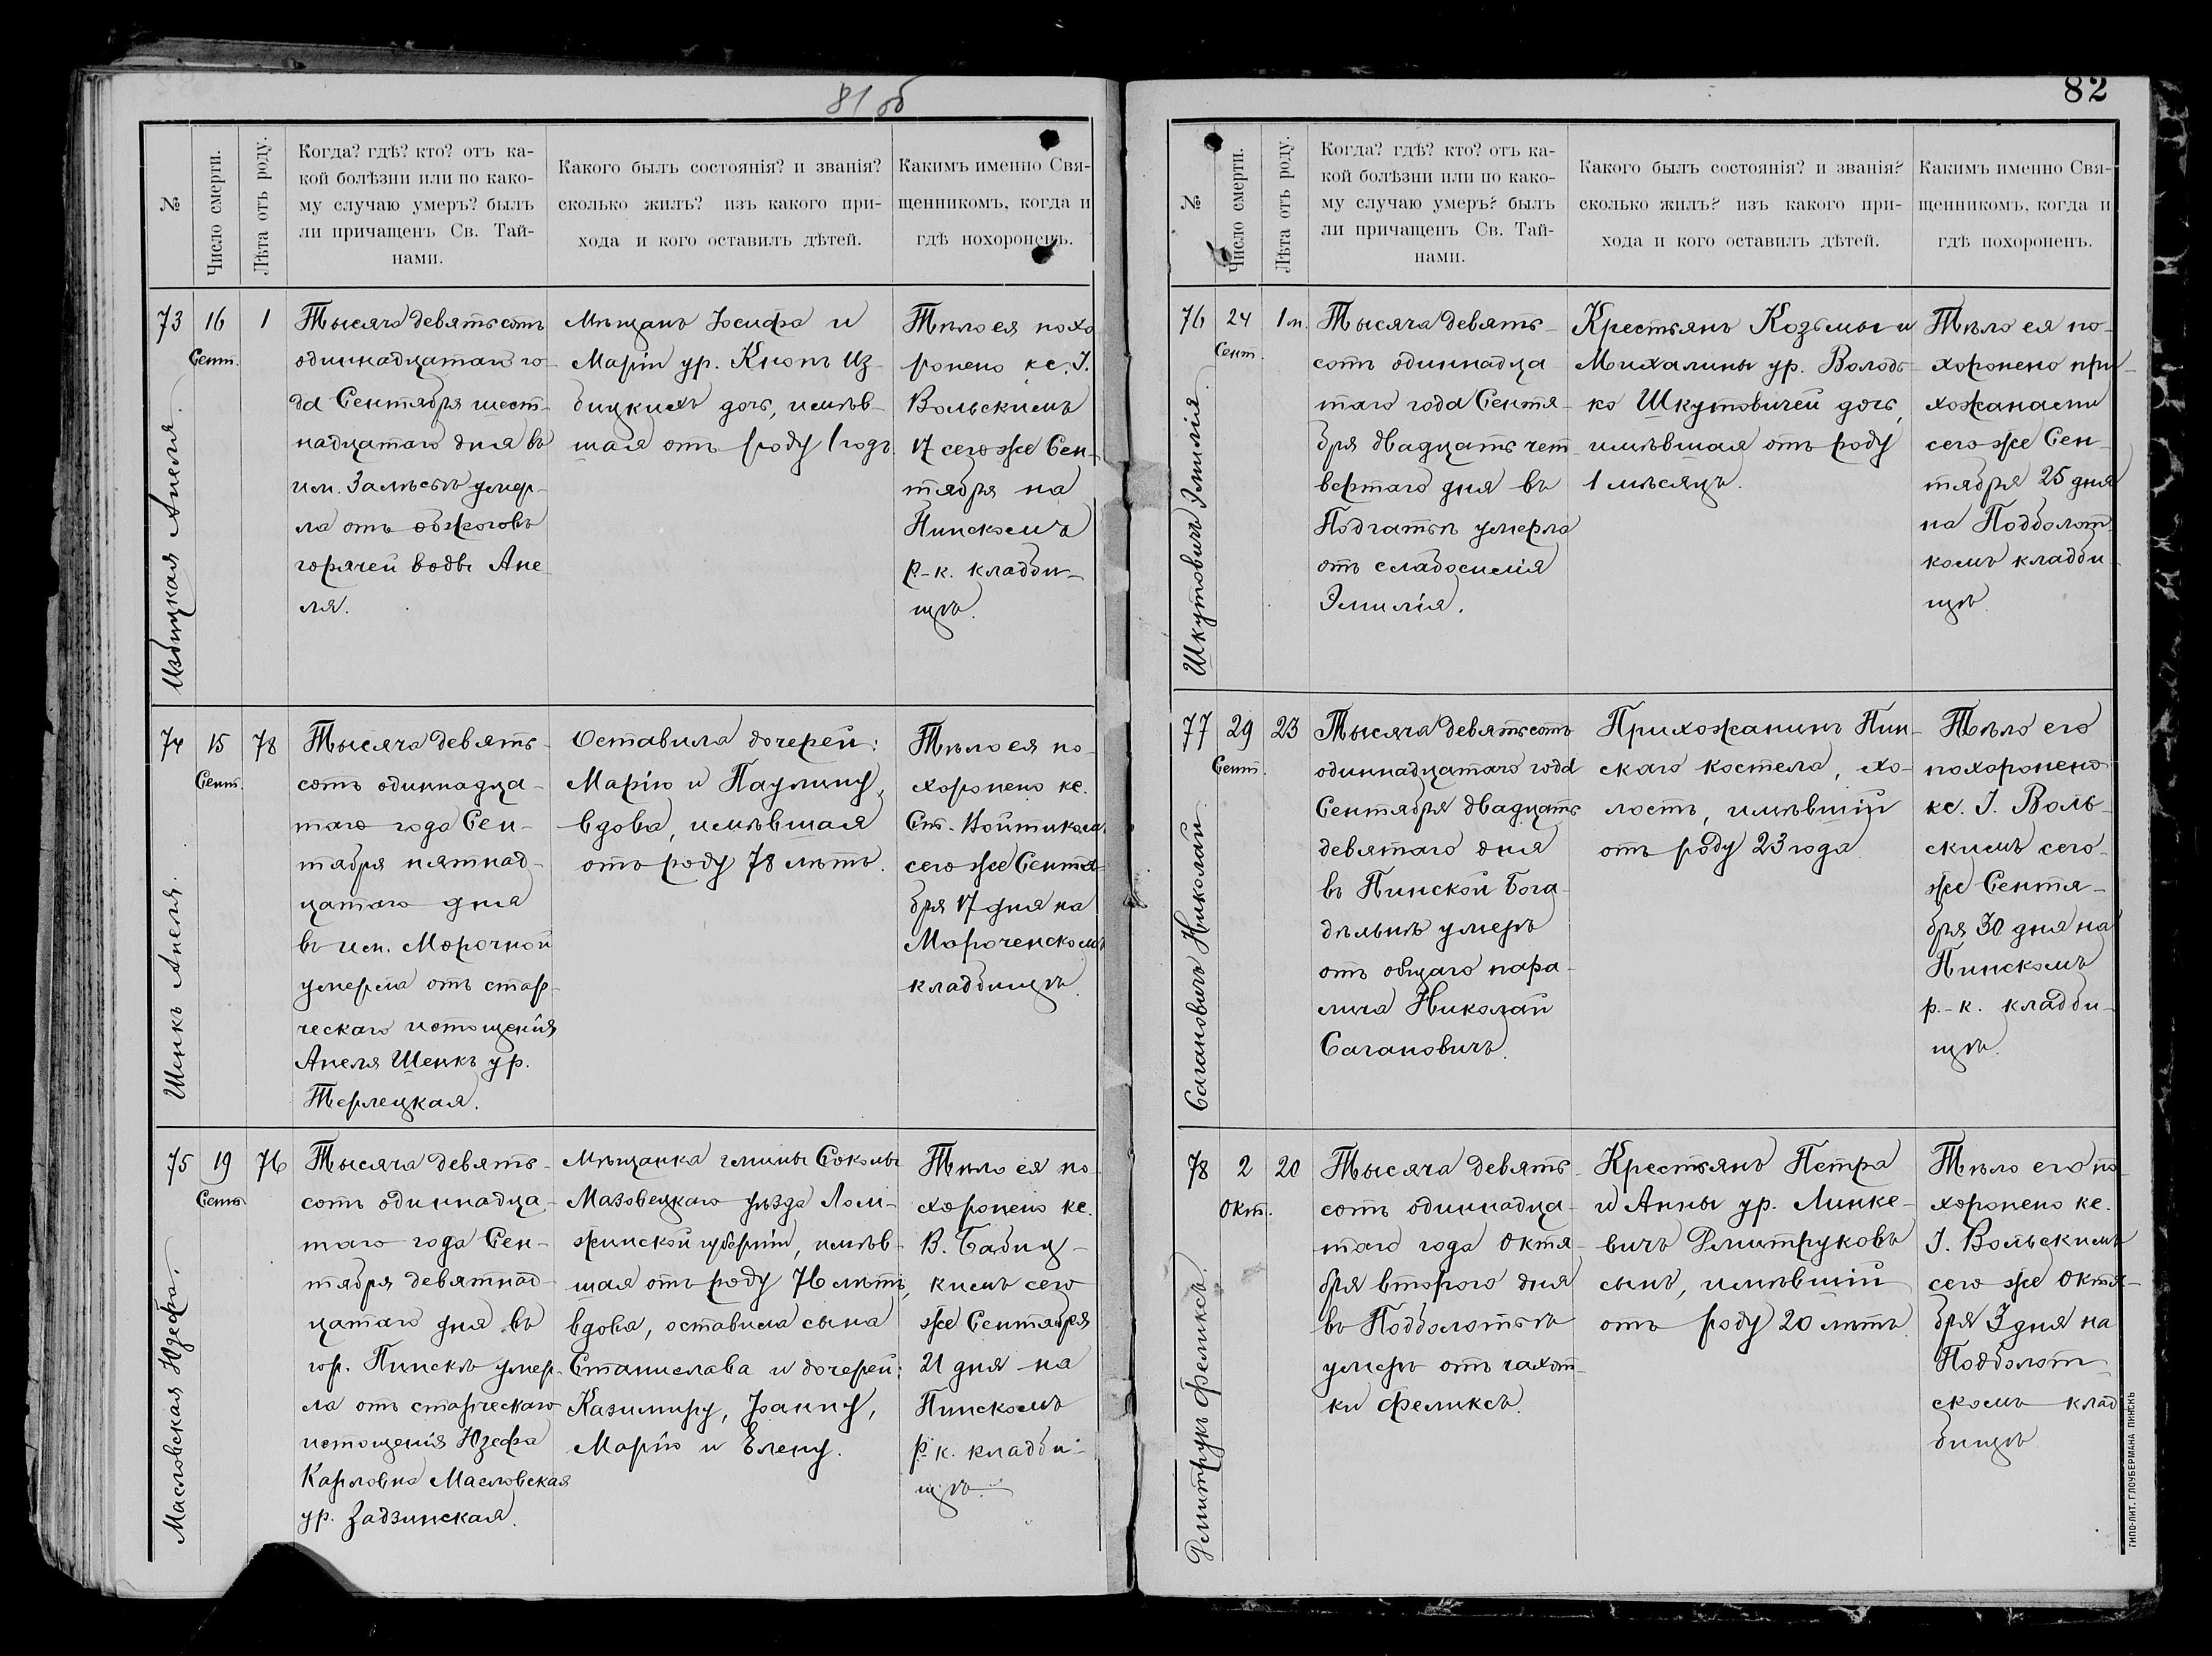 81 об
№
Число смерти.
Лѣта отъ роду.
Когда? гдѣ? кто? отъ ка-
кой болѣзни или по како-
му случаю умеръ? былъ
ли причащенъ Св. Тай-
нами.
Какого былъ состоянія? и званія?
сколько жилъ? изъ какого при-
хода и кого оставилъ дѣтей.
Какимъ именно Свя-
щенникомъ, когда и
гдѣ похороненъ.
73
16
Сент.
1
Избицкая Анеля.
Тысяча девятьсотъ
одиннадцатаго го-
да Сентября шест-
надцатаго дня въ
им. Залѣсьѣ умер-
ла отъ обжоговъ
горячей воды Ане
ля.
Мѣщанъ Іосифа и
Маріи ур. Кнопъ Из-
бицкихъ дочь, имѣв-
шая отъ роду 1 годъ.
Тѣло ея похо
ронено кс. І.
Вольскимъ
17 сего же Сен-
тября на
Пинскомъ
р.-к. кладби-
щѣ.
74
15
Сент.
78
Шенкъ Анеля.
Тысяча девять-
сотъ одиннадца-
таго года Сен-
тября пятнад-
цатаго дня
въ им. Морочной
умерла отъ стар-
ческаго истощенія
Анеля Шенкъ ур.
Терлецкая.
Оставила дочерей:
Марію и Паулину,
вдова, имѣвшая
отъ роду 78 лѣтъ.
Тѣло ея по-
хоронено кс.
Ст. Войтикомъ
сего же Сентя-
бря 17 дня на
Мороченскомъ
кладбищѣ.
75
19
Сент.
76
Масловская Юзефа.
Тысяча девять-
сотъ одиннадца-
таго года Сен-
тября девятнад-
цатаго дня въ
гор. Пинскѣ умер-
ла отъ старческаго
истощенія Юзефа
Карловна Масловская
ур. Задзинская.
Мѣщанка гмины Соколы
Мазовецкаго уѣзда Лом-
жинской губерніи, имѣв-
шая отъ роду 76 лѣтъ,
вдова, оставила сына
Станислава и дочерей:
Казимиру, Іоанну,
Марію и Елену.
Тѣло ея по-
хоронено кс.
В. Бабиц-
кимъ сего
же Сентября
21 дня на
Пинскомъ
р.-к. кладби-
щѣ.
82
№
Число смерти.
Лѣта отъ роду.
Когда? гдѣ? кто? отъ ка-
кой болѣзни или по како-
му случаю умеръ? былъ
ли причащенъ Св. Тай-
нами.
Какого былъ состоянія? и званія?
сколько жилъ? изъ какого при-
хода и кого оставилъ дѣтей.
Какимъ именно Свя-
щенникомъ, когда и
гдѣ похороненъ.
76
24
Сент.
1 м.
Шкутовичъ Эмилія.
Тысяча девять-
сотъ одиннадца
таго года Сентя-
бря двадцать чет
вертаго дня въ
Подгатьѣ умерла
отъ слабосилія
Эмилія.
Крестьянъ Козьмы и
Михалины ур. Володь-
ко Шкутовичей дочь,
имѣвшая отъ роду
1 мѣсяцъ.
Тѣло ея по-
хоронено при-
хожанами
сего же Сен-
тября 25 дня
на Подболот-
комъ кладби
щѣ.
77
29
Сент.
23
Сагановичъ Николай
Тысяча девятьсотъ
одиннадцатаго года
Сентября двадцать
девятаго дня
въ Пинской Бога-
дѣльнѣ умеръ
отъ общаго пара-
лича Николай
Сагановичъ.
Прихожанинъ Пин-
скаго костела, хо-
лостъ, имѣвшій
отъ роду 23 года
Тѣло его
похоронено
кс. І. Воль-
скимъ сего-
же Сентя-
бря 30 дня на
Пинскомъ
р.-к. кладби-
щѣ.
78
2
Окт.
20
Рмитрукъ Феликсъ.
Тысяча девять-
сотъ одиннадца-
таго года Октя-
бря второго дня
въ Подболотьѣ
умеръ отъ чахот-
ки Феликсъ.
Крестьянъ Петра
и Анны ур. Линке-
вичъ Рмитруковъ
сынъ, имѣвшій
отъ роду 20 лѣтъ
Тѣло его по-
хоронено кс.
І. Вольскимъ
сего же Октя-
бря 3 дня на
Подболот-
скомъ клад
бищѣ
ТИПО-ЛИТ. ГЛОУБЕРМАНА ПИНСКЪ